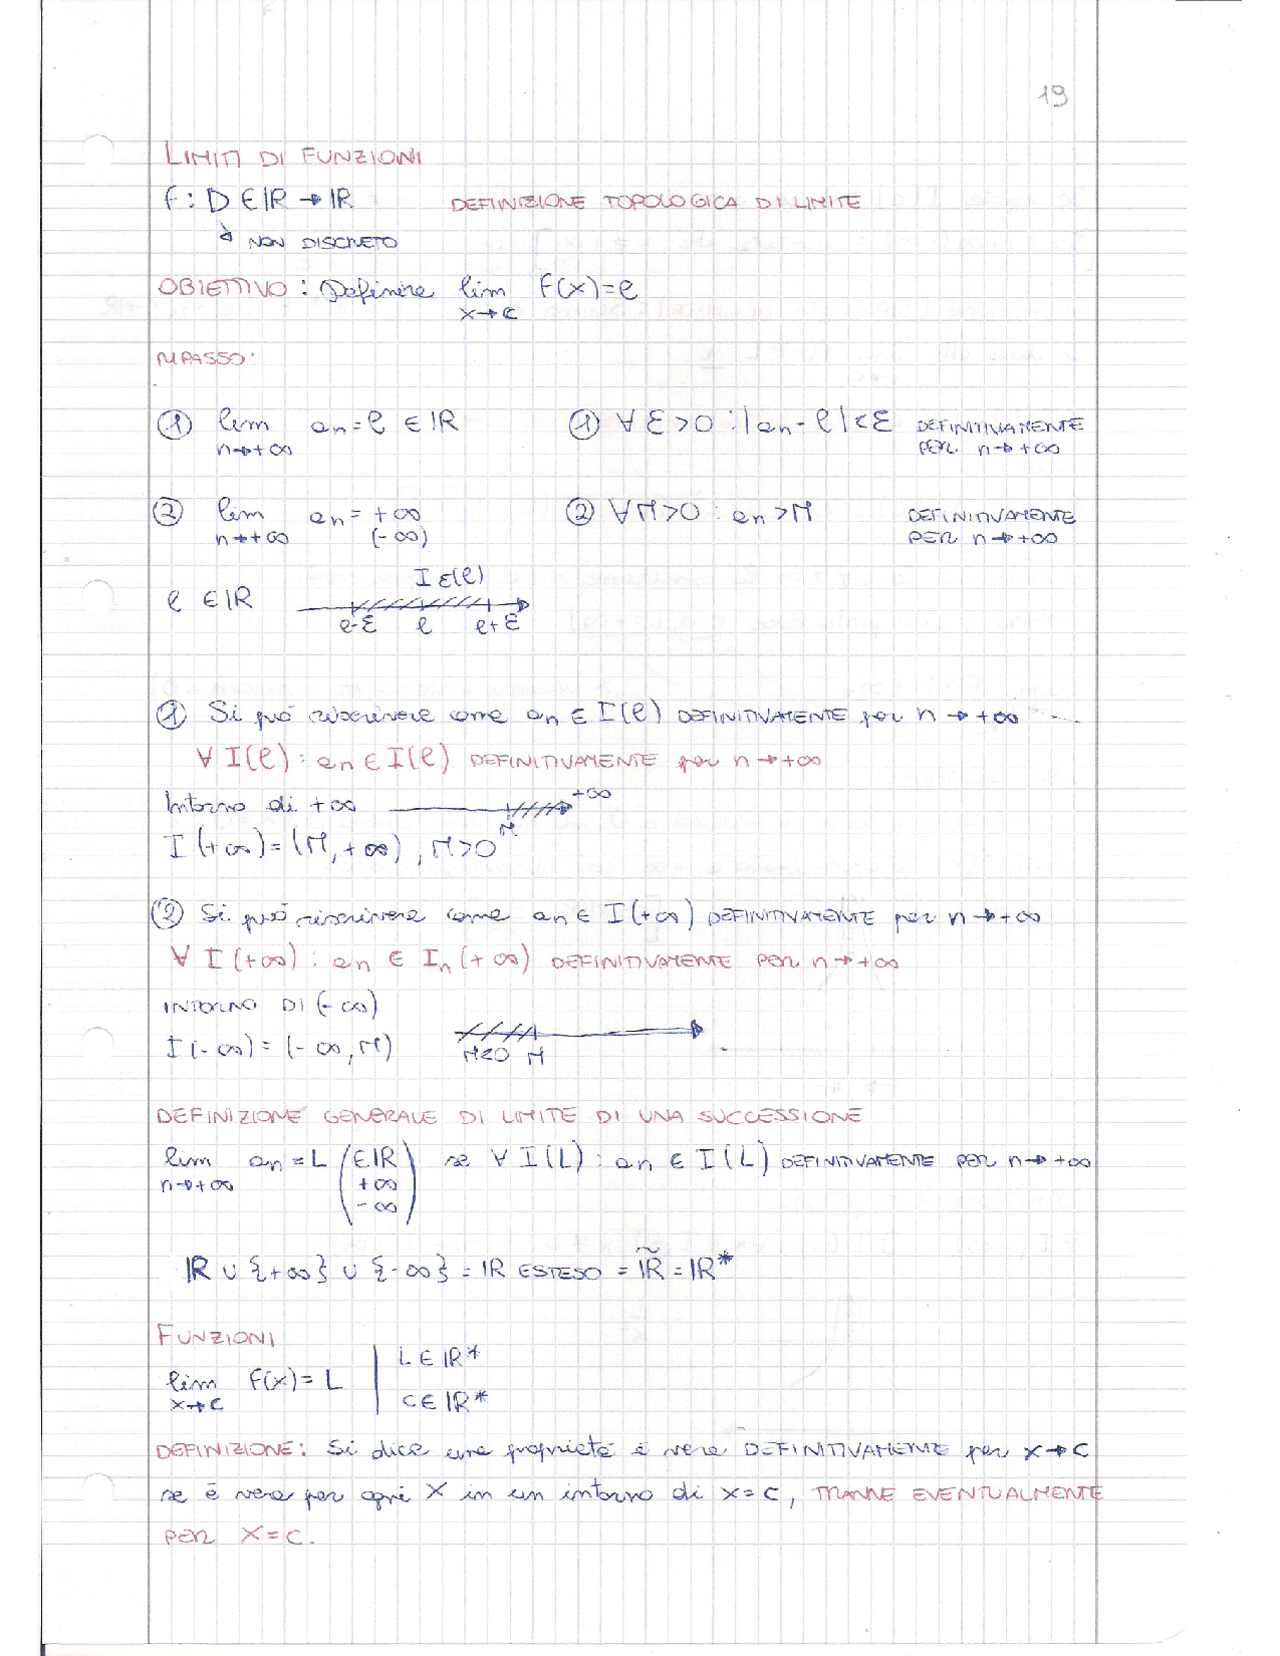 19
LIMITI DI FUNZIONI
f: D ∈ IR → IR DEFINIZIONE TOPOLOGICA DI LIMITE
↳ NON DISCRETO
OBIETTIVO: Definire lim F(x)=ℓ
x→c
RIPASSO:
① lim an=ℓ ∈ IR ① ∀ ε>0 : |an-ℓ|<ε DEFINITIVAMENTE
n→+∞ PER n→+∞
② lim an= +∞ ② ∀M>0 : an>M DEFINITIVAMENTE
n→+∞ (-∞) PER n→+∞
I ε(ℓ)
ℓ ∈ IR
ℓ-ε ℓ ℓ+ε
① Si può riscrivere come an ∈ I(ℓ) DEFINITIVAMENTE per n→+∞ ...
∀ I(ℓ) : an ∈ I(ℓ) DEFINITIVAMENTE per n→+∞
Intorno di +∞ +∞
M
I(+∞)=(M,+∞), M>0
② Si può riscrivere come an ∈ I(+∞) DEFINITIVAMENTE per n→+∞
∀ I(+∞) : an ∈ In(+∞) DEFINITIVAMENTE PER n→+∞
INTORNO DI (-∞)
I(-∞)=(-∞,M) M<0 M
DEFINIZIONE GENERALE DI LIMITE DI UNA SUCCESSIONE
lim an=L (∈IR se ∀ I(L) : an ∈ I(L) DEFINITIVAMENTE PER n→+∞
n→+∞ +∞
-∞)
IR ∪ {+∞} ∪ {-∞} = IR ESTESO = ĨR = IR*
FUNZIONI
L ∈ IR*
lim F(x)=L
x→c c ∈ IR*
DEFINIZIONE: Si dice una proprietà è vera DEFINITIVAMENTE per x→c
se è vera per ogni x in un intorno di x=c, TRANNE EVENTUALMENTE
PER x=c.